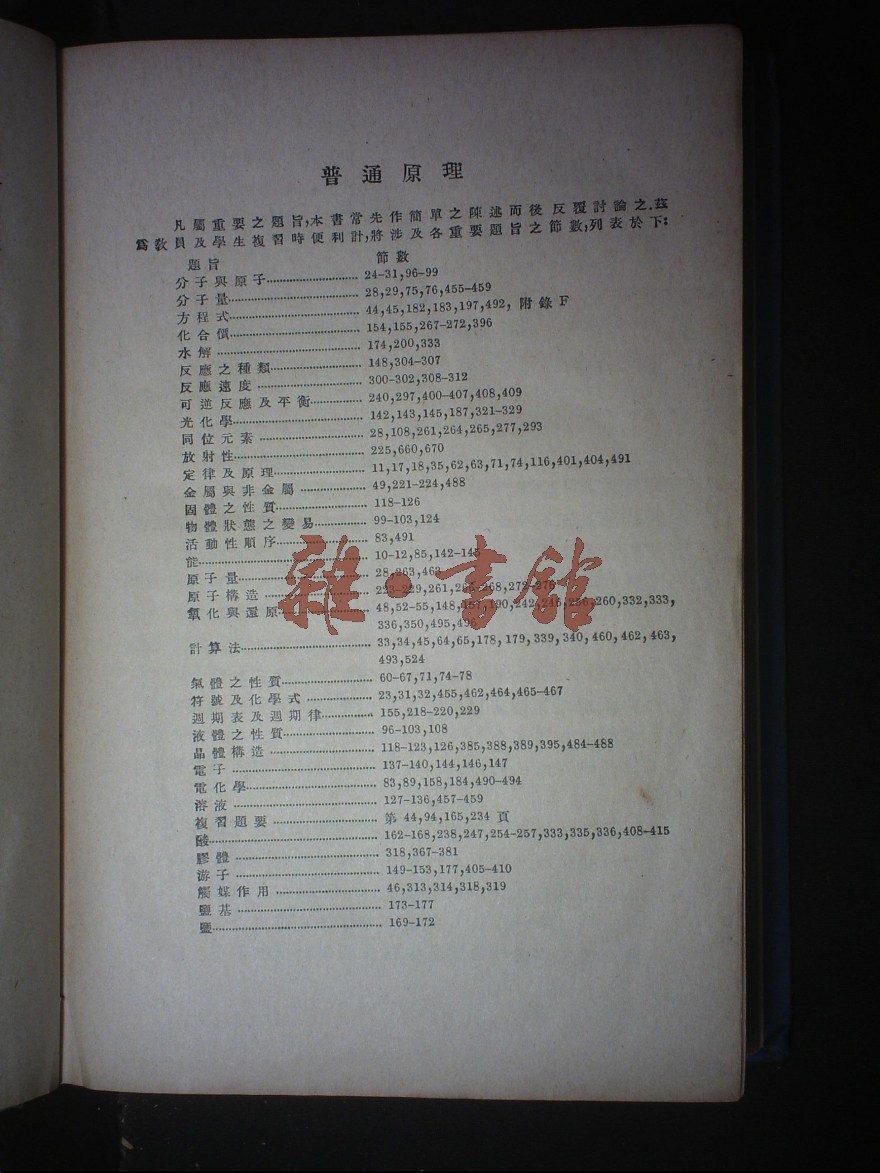 普通原理
凡屬重要之題旨,本書常先作簡單之陳述而後反覆討論之.茲
爲教員及學生複習時便利計,將涉及各重要題旨之節數,列表於下:
題旨 節數
分子與原子 24-31,96-99
分子量 28,29,75,76,455-459
方程式 44,45,182,183,197,492, 附錄F
化合價 154,155,267-272,396
水解 174,200,333
反應之種類 148,304-307
反應速度 300-302,308-312
可逆反應及平衡 240,297,400-407,408,409
光化學 142,143,145,187,321-329
同位元素 28,108,261,264,265,277,293
放射性 225,660,670
定律及原理 11,17,18,35,62,63,71,74,116,401,404,491
金屬與非金屬 49,221-224,488
固體之性質 118-126
物體狀態之變易 99-103,124
活動性順序 83,491
能 10-12,85,142-145
原子量 28,263,463
原子構造 223-229,261,
氧化與還原 48,52-55,148,157,190,242,246,256,260,332,333,
336,350,495,496
計算法 33,34,45,64,65,178,179,339,340,460,462,463,
493,524
氣體之性質 60-67,71,74-78
符號及化學式 23,31,32,455,462,464,465-467
週期表及週期律 155,218-220,229
液體之性質 96-103,108
晶體構造 118-123,126,385,388,389,395,484-488
電子 137-140,144,146,147
電化學 83,89,158,184,490-494
溶液 127-136,457-459
複習題要 第44,94,165,234頁
酸 162-168,238,247,254-257,333,335,336,408-415
膠體 318,367-381
游子 149-153,177,405-410
觸媒作用 46,313,314,318,319
鹽基 173-177
鹽 169-172
雜·書館